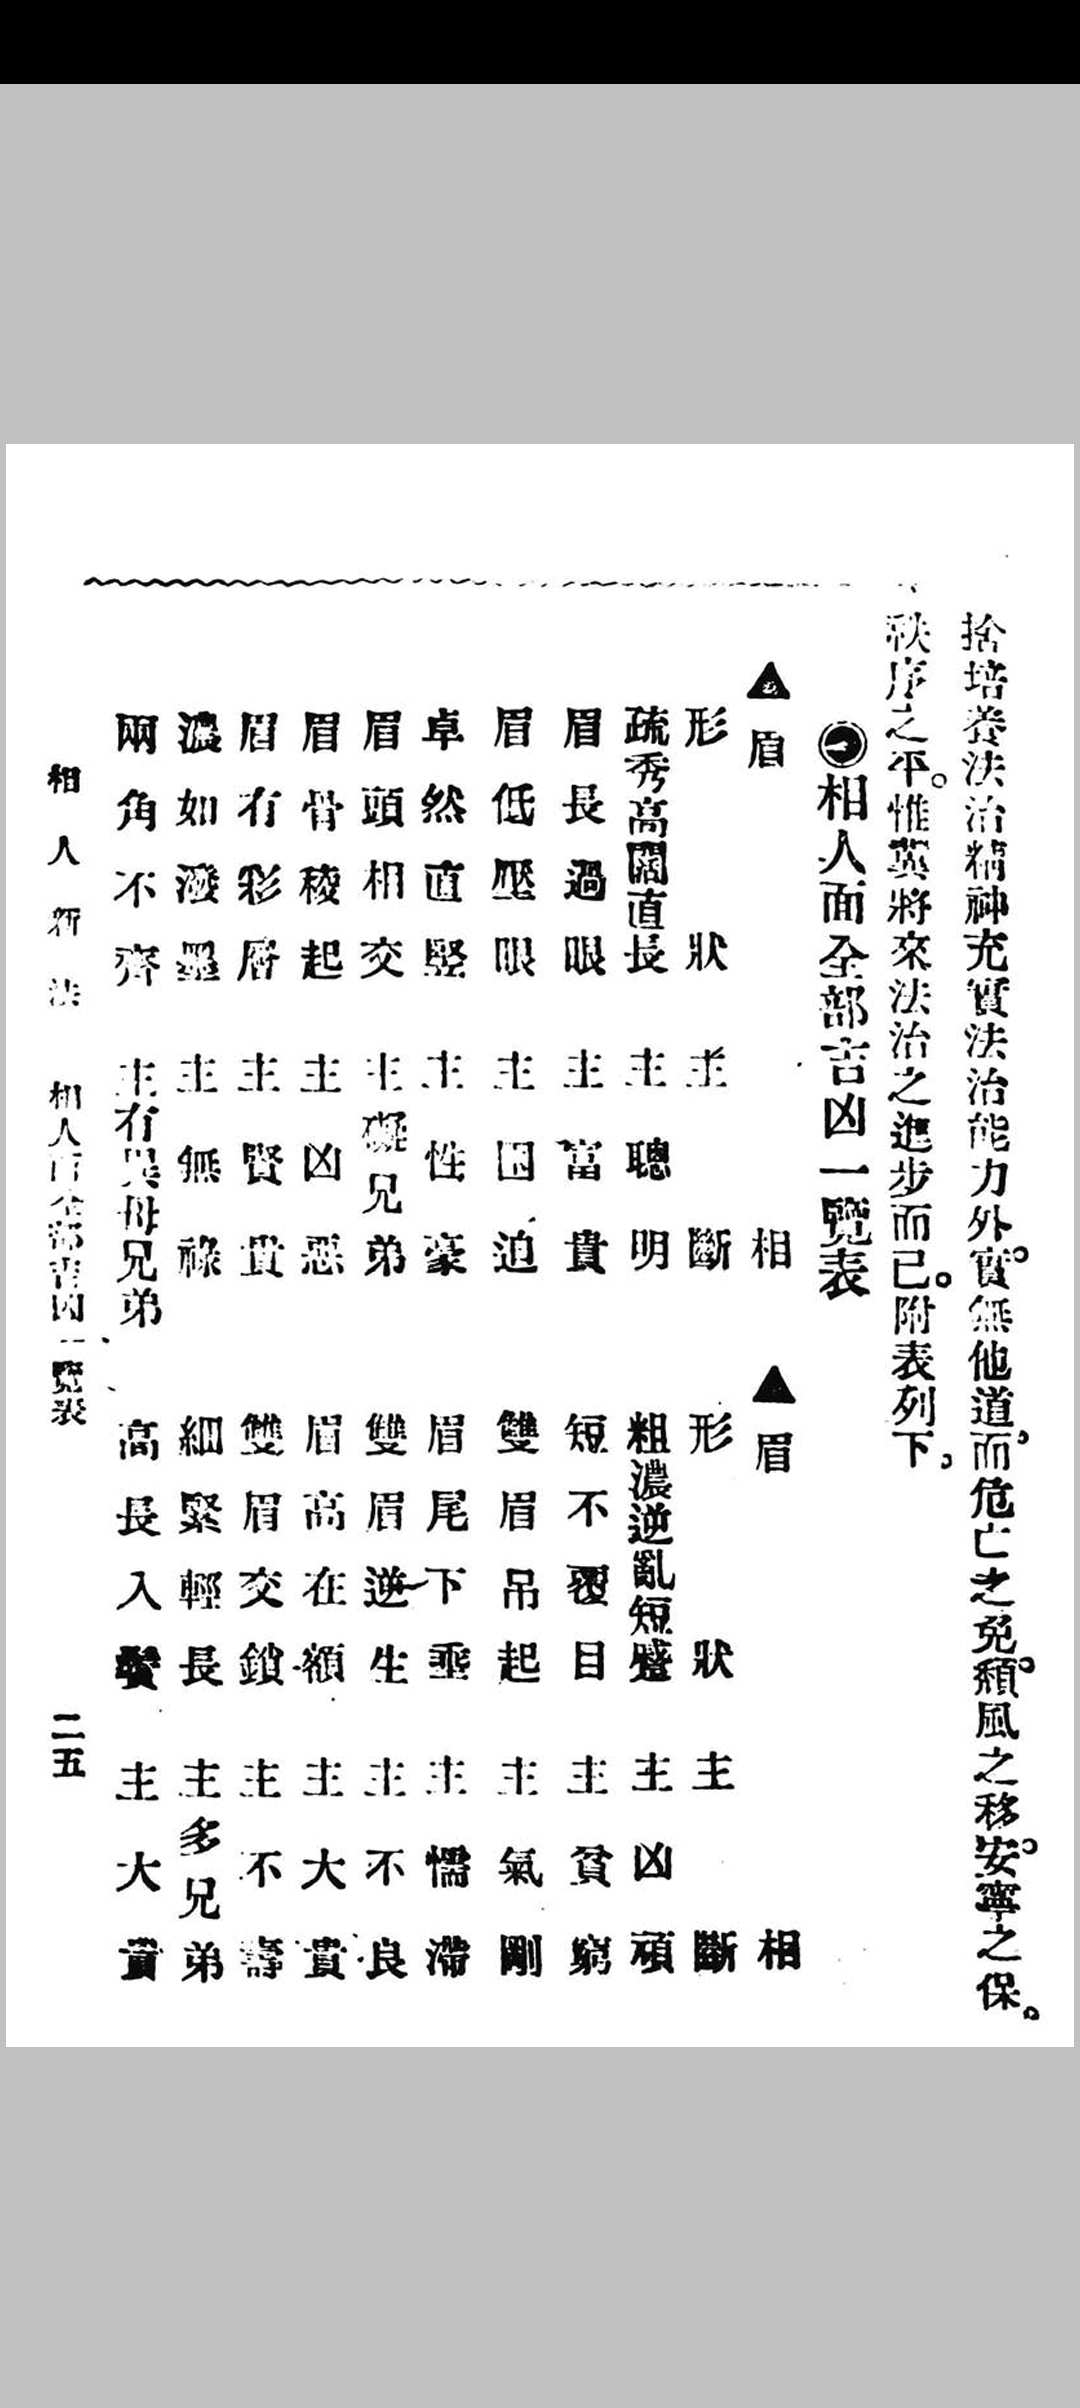 捨培養法治精神充實法治能力外。實無他道，而危亡之免。頹風之移。安寧之保。
秩序之平。惟冀將來法治之進步而已。附表列下，
㊀相人面全部吉凶一覽表
▲眉相
形狀 主斷
疏秀高闊直長 主聰明
眉長過眼 主富貴
眉低壓眼 主困迫
卓然直豎 主性豪
眉頭相交 主礙兄弟
眉骨稜起 主凶惡
眉有彩層 主賢貴
濃如潑墨 主無祿
兩角不齊 主有異母兄弟
▲眉相
形狀 主斷
粗濃逆亂短蹙 主凶頑
短不覆目 主貧窮
雙眉吊起 主氣剛
眉尾下垂 主懦滯
雙眉逆生 主不良
眉高在額 主大貴
雙眉交鎖 主不壽
細緊輕長 主多兄弟
高長入鬢 主大貴
相人新法 相人面全部吉凶一覽表 二五